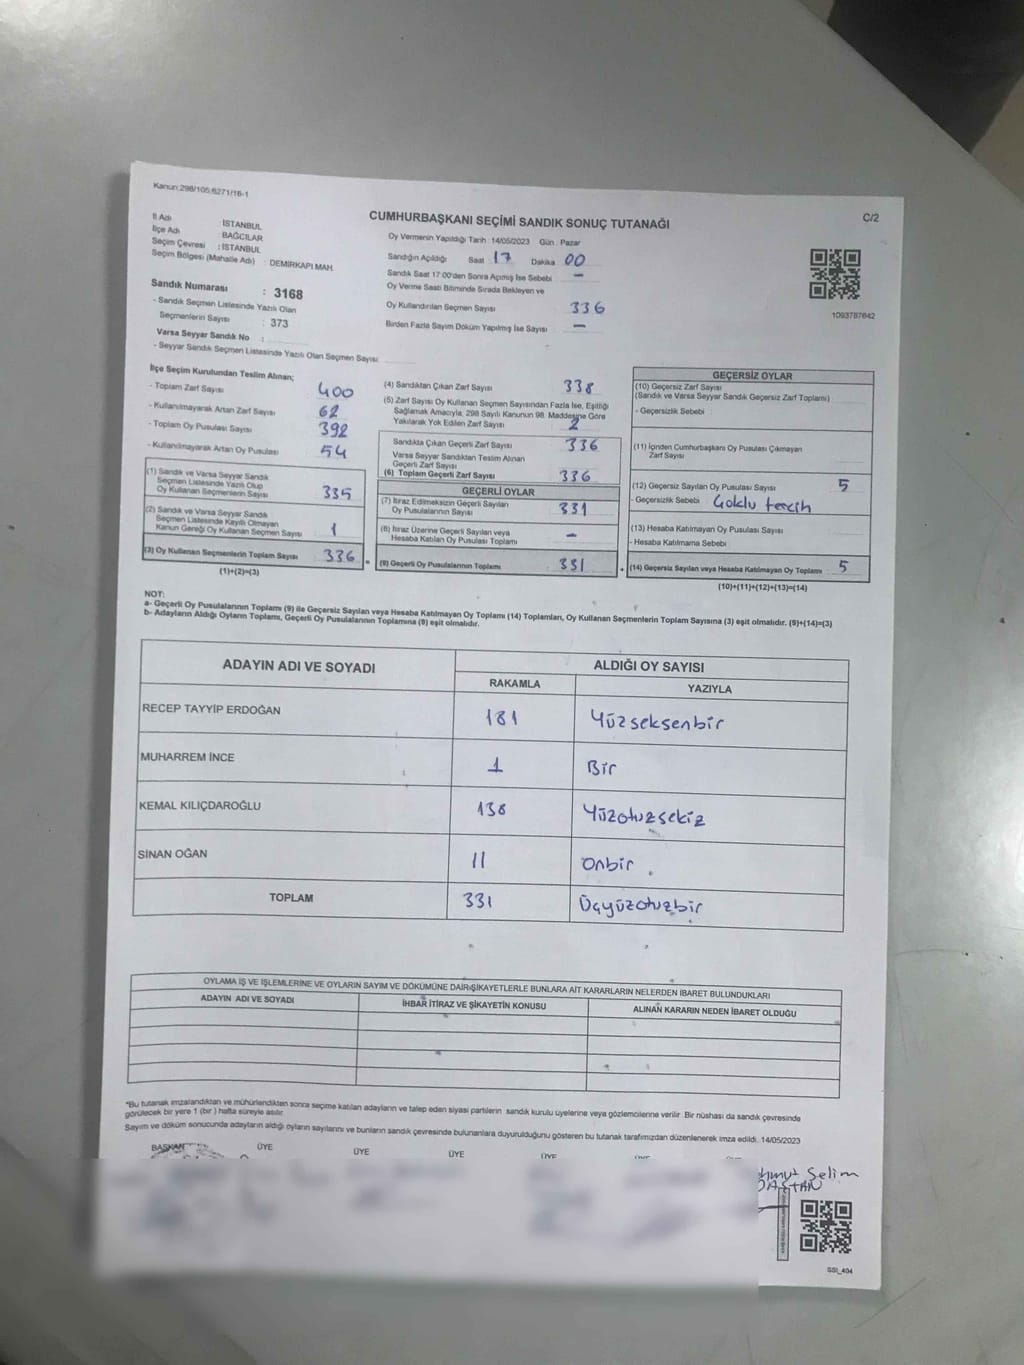 Kanun:298/105;6271/16-1
C/2
CUMHURBAŞKANI SEÇİMİ SANDIK SONUÇ TUTANAĞI
İl Adı : İSTANBUL
İlçe Adı : BAĞCILAR
Seçim Çevresi : İSTANBUL
Seçim Bölgesi (Mahalle Adı) : DEMİRKAPI MAH.
Sandık Numarası : 3168
- Sandık Seçmen Listesinde Yazılı Olan
Seçmenlerin Sayısı : 373
Varsa Seyyar Sandık No :
- Seyyar Sandık Seçmen Listesinde Yazılı Olan Seçmen Sayısı:
Oy Vermenin Yapıldığı Tarih : 14/05/2023 Gün : Pazar
Sandığın Açıldığı Saat 17 Dakika 00
Sandık Saat 17:00'den Sonra Açılmış İse Sebebi –
Oy Verme Saati Bitiminde Sırada Bekleyen ve
Oy Kullandırılan Seçmen Sayısı 336
Birden Fazla Sayım Döküm Yapılmış İse Sayısı –
1093787642
İlçe Seçim Kurulundan Teslim Alınan;
- Toplam Zarf Sayısı 400
- Kullanılmayarak Artan Zarf Sayısı 62
- Toplam Oy Pusulası Sayısı 392
- Kullanılmayarak Artan Oy Pusulası 54
(1) Sandık ve Varsa Seyyar Sandık
Seçmen Listesinde Yazılı Olup
Oy Kullanan Seçmenlerin Sayısı 335
(2) Sandık ve Varsa Seyyar Sandık
Seçmen Listesinde Kayıtlı Olmayan
Kanun Gereği Oy Kullanan Seçmen Sayısı 1
(3) Oy Kullanan Seçmenlerin Toplam Sayısı 336
(1)+(2)=(3)
(4) Sandıktan Çıkan Zarf Sayısı 338
(5) Zarf Sayısı Oy Kullanan Seçmen Sayısından Fazla İse, Eşitliği
Sağlamak Amacıyla, 298 Sayılı Kanunun 98. Maddesine Göre
Yakılarak Yok Edilen Zarf Sayısı 2
Sandıkta Çıkan Geçerli Zarf Sayısı 336
Varsa Seyyar Sandıktan Teslim Alınan
Geçerli Zarf Sayısı
(6) Toplam Geçerli Zarf Sayısı 336
GEÇERLİ OYLAR
(7) İtiraz Edilmeksizin Geçerli Sayılan
Oy Pusulalarının Sayısı 331
(8) İtiraz Üzerine Geçerli Sayılan veya
Hesaba Katılan Oy Pusulası Toplamı –
= (9) Geçerli Oy Pusulalarının Toplamı 331 +
GEÇERSİZ OYLAR
(10) Geçersiz Zarf Sayısı
(Sandık ve Varsa Seyyar Sandık Geçersiz Zarf Toplamı)
- Geçersizlik Sebebi
(11) İçinden Cumhurbaşkanı Oy Pusulası Çıkmayan
Zarf Sayısı
(12) Geçersiz Sayılan Oy Pusulası Sayısı 5
- Geçersizlik Sebebi Çoklu tercih
(13) Hesaba Katılmayan Oy Pusulası Sayısı
- Hesaba Katılmama Sebebi
(14) Geçersiz Sayılan veya Hesaba Katılmayan Oy Toplamı 5
(10)+(11)+(12)+(13)=(14)
NOT:
a- Geçerli Oy Pusulalarının Toplamı (9) ile Geçersiz Sayılan veya Hesaba Katılmayan Oy Toplamı (14) Toplamları, Oy Kullanan Seçmenlerin Toplam Sayısına (3) eşit olmalıdır. (9)+(14)=(3)
b- Adayların Aldığı Oyların Toplamı, Geçerli Oy Pusulalarının Toplamına (9) eşit olmalıdır.
ADAYIN ADI VE SOYADI ALDIĞI OY SAYISI
RAKAMLA YAZIYLA
RECEP TAYYİP ERDOĞAN 181 Yüzseksenbir
MUHARREM İNCE 1 Bir
KEMAL KILIÇDAROĞLU 138 Yüzotuzsekiz
SİNAN OĞAN 11 Onbir
TOPLAM 331 Üçyüzotuzbir
OYLAMA İŞ VE İŞLEMLERİNE VE OYLARIN SAYIM VE DÖKÜMÜNE DAİR ŞİKAYETLERLE BUNLARA AİT KARARLARIN NELERDEN İBARET BULUNDUKLARI
ADAYIN ADI VE SOYADI İHBAR İTİRAZ VE ŞİKAYETİN KONUSU ALINAN KARARIN NEDEN İBARET OLDUĞU
*Bu tutanak imzalandıktan ve mühürlendikten sonra seçime katılan adayların ve talep eden siyasi partilerin sandık kurulu üyelerine veya gözlemcilerine verilir. Bir nüshası da sandık çevresinde
görülecek bir yere 1 (bir) hafta süreyle asılır.
Sayım ve döküm sonucunda adayların aldığı oyların sayılarını ve bunların sandık çevresinde bulunanlara duyurulduğunu gösteren bu tutanak tarafımızdan düzenlenerek imza edildi. 14/05/2023
BAŞKAN ÜYE ÜYE ÜYE ÜYE
Selim
SSI_404